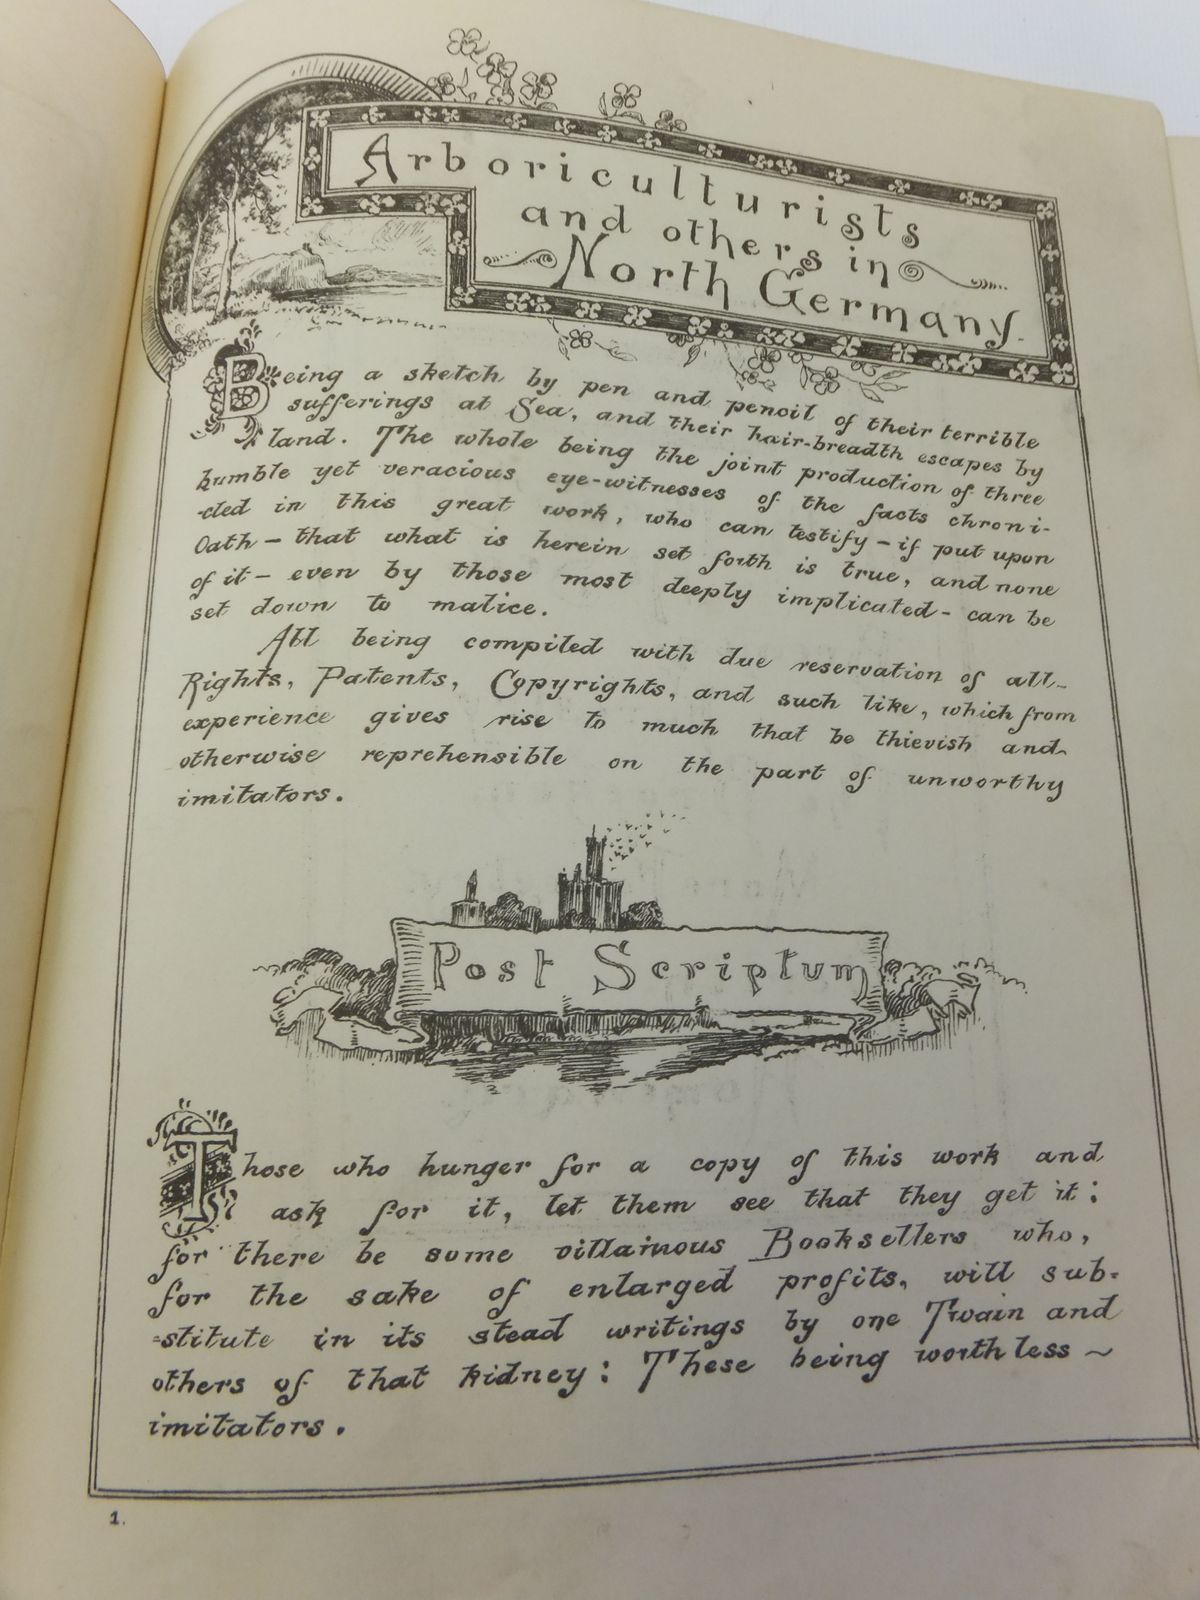 Arboriculturists
and others in
North Germany.
Being a sketch by pen and pencil of their terrible
sufferings at Sea, and their hair-breadth escapes by
land. The whole being the joint production of three
humble yet veracious eye-witnesses of the facts chroni-
-cled in this great work, who can testify - if put upon
Oath - that what is herein set forth is true, and none
of it - even by those most deeply implicated - can be
set down to malice.
All being compiled with due reservation of all
Rights, Patents, Copyrights, and such like, which from
experience gives rise to much that be thievish and
otherwise reprehensible on the part of unworthy
imitators.
Post Scriptum
Those who hunger for a copy of this work and
ask for it, let them see that they get it:
for there be some villainous Booksellers who,
for the sake of enlarged profits, will sub-
-stitute in its stead writings by one Twain and
others of that kidney: These being worthless ~
imitators.
1.